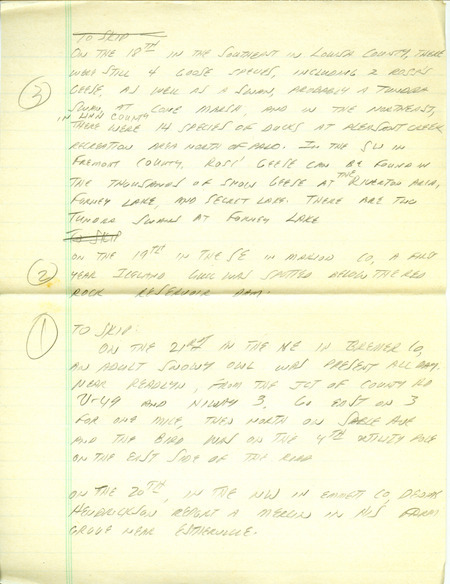 TO SKIP
ON THE 18TH IN THE SOUTHEAST IN LOUISA COUNTY, THERE
WERE STILL 4 GOOSE SPECIES, INCLUDING 2 ROSS'S
GEESE, AS WELL AS A SWAN, PROBABLY A TUNDRA
SWAN, AT CONE MARSH, AND IN THE NORTHEAST,
IN LINN COUNTY
THERE WERE 14 SPECIES OF DUCKS AT PLEASANT CREEK
RECREATION AREA NORTH OF PALO. IN THE SW IN
FREMONT COUNTY, ROSS' GEESE CAN BE FOUND IN
THE THOUSANDS OF SNOW GEESE AT THE RIVERTON AREA,
FORNEY LAKE, AND SECRET LAKE. THERE ARE TWO
TUNDRA SWANS AT FORNEY LAKE
3
TO SKIP
ON THE 17TH IN THE SE IN MARION CO, A FIRST
YEAR ICELAND GULL WAS SPOTTED BELOW THE RED
ROCK RESERVOIR DAM.
2
1
TO SKIP:
ON THE 21ST IN THE NE IN BREMER CO,
AN ADULT SNOWY OWL WAS PRESENT ALL DAY.
NEAR READLYN, FROM THE JCT OF COUNTY RD
V-49 AND HIWAY 3, GO EAST ON 3
FOR ONE MILE, THEN NORTH ON SABLE AVE
AND THE BIRD WAS ON THE 4TH UTILITY POLE
ON THE EAST SIDE OF THE ROAD
ON THE 20TH, IN THE NW IN EMMET CO,
HENDRICKSON REPORT A MERLIN IN HIS FARM
GROVE NEAR ESTHERVILLE.